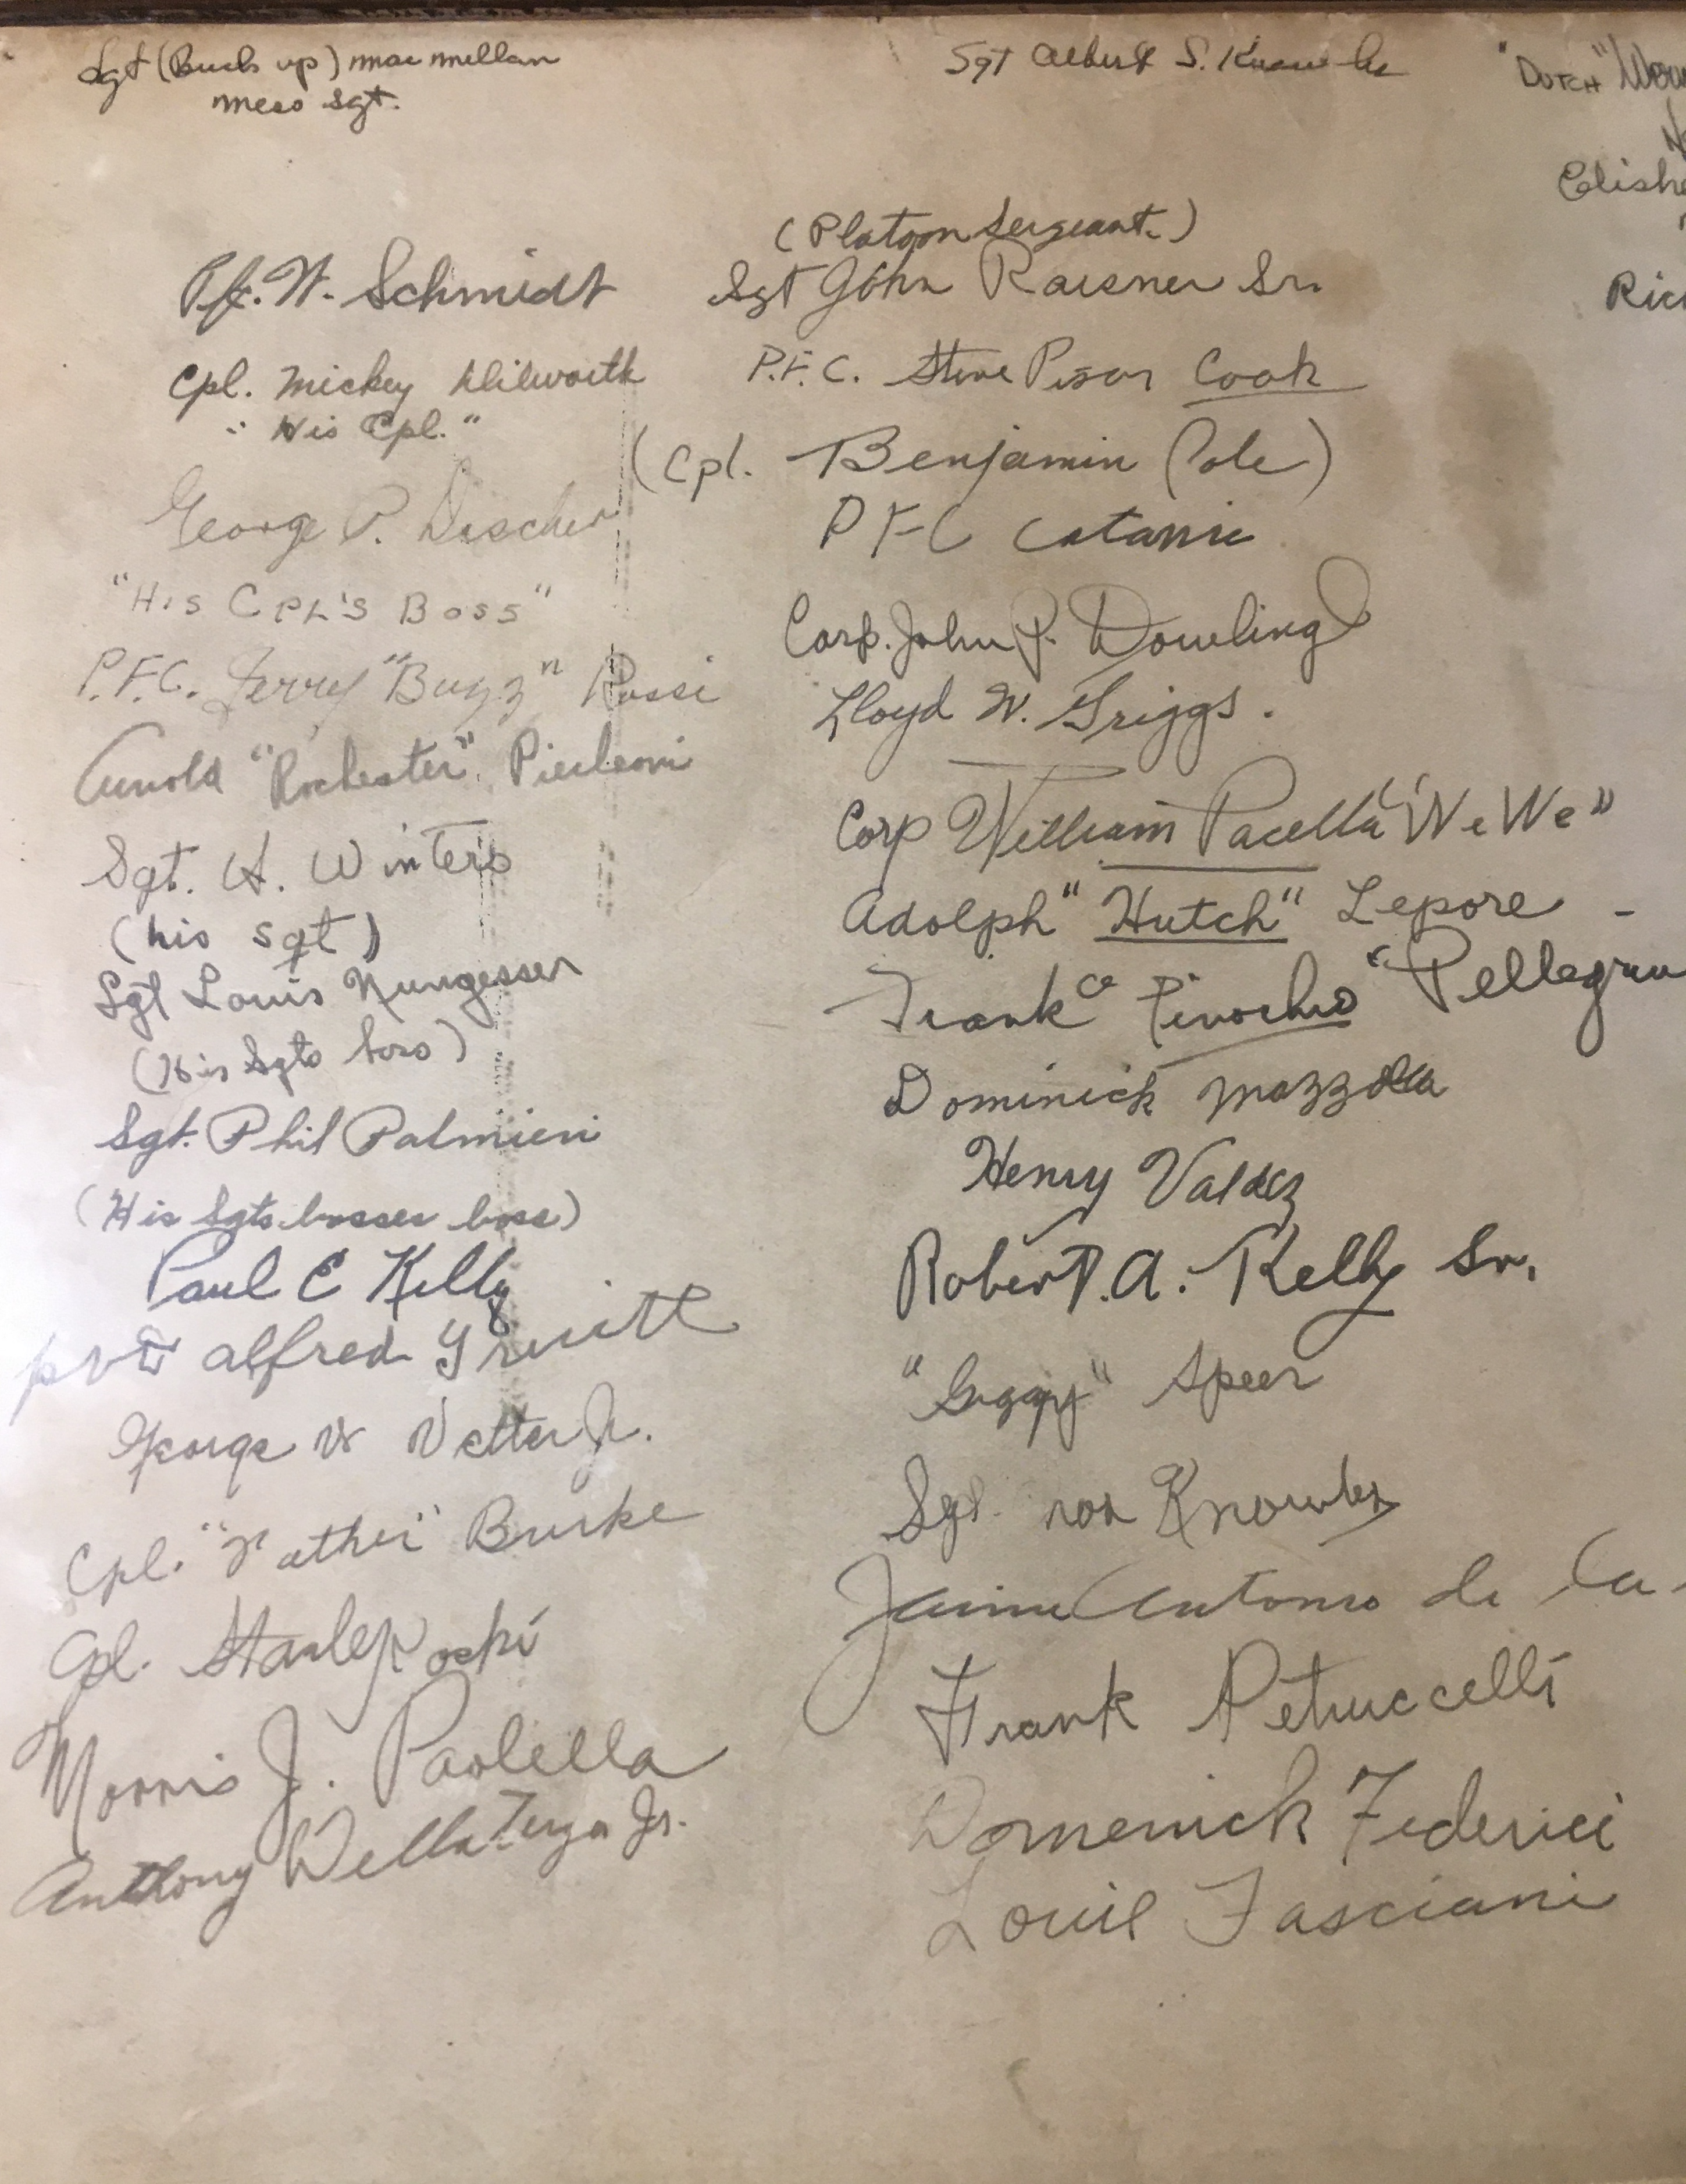 Sgt (Buck up) mac millan
mess Sgt.
Pfc. W. Schmidt
Cpl. Mickey Dilworth
" His Cpl."
George P. Discher
"HIS CPL'S BOSS"
P.F.C. Jerry "Buzz" Rossi
Arnold "Rochester" Pierleoni
Sgt. H. Winters
(his sgt)
Sgt Louis Nungesser
(His Sgts boss)
Sgt. Phil Palmieri
(His Sgts. bosses boss)
Paul E Kelly
pvt alfred
George W Vetter Jr.
Cpl. "Father" Burke
Cpl. Stanley
Morris J. Paolella
Anthony DellaTerza Jr.
Sgt Albert S. Knowles
(Platoon Sergeant.)
Sgt John Raisner Sr.
P.F.C. Steve Pisar Cook
(Cpl. Benjamin Cole)
PFC Catanic
Corp. John P. Dowling
Lloyd W. Griggs.
Corp William Pacella "We We"
Adolph "Hutch" Lepore -
Frank "Pinochio" Pellegrin
Dominick Mazzella
Henry Valdez
Robert. A. Kelly Sr.
Speer
Sgt. Knowles
Jaime Antonio de
Frank Petruccelli
Domenick Federici
Louie Fasciani
"DUTCH"
Elishe
Ric